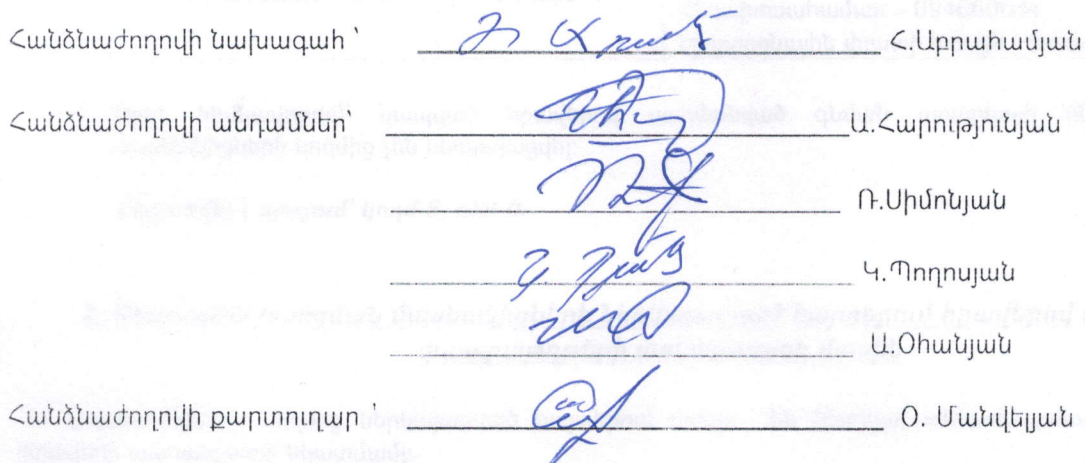 Հանձնաժողովի նախագահ ՝ Հ.Աբրահամյան
Հանձնաժողովի անդամներ՝ Ա.Հարությունյան
Ռ.Սիմոնյան
Կ.Պողոսյան
Ա.Օհանյան
Հանձնաժողովի քարտուղար ՝ Օ. Մանվելյան